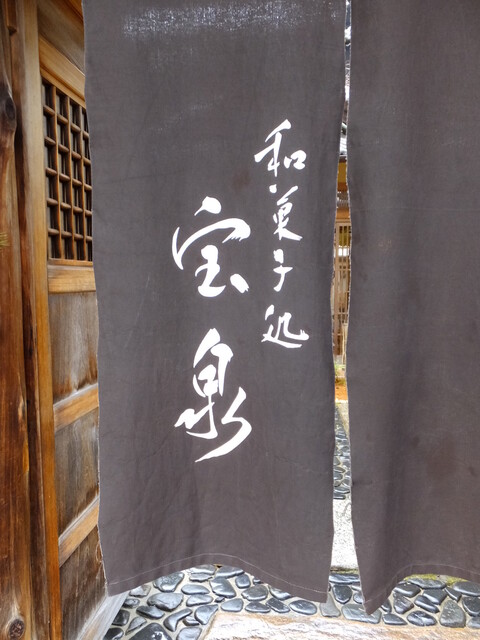 和菓子処
宝泉